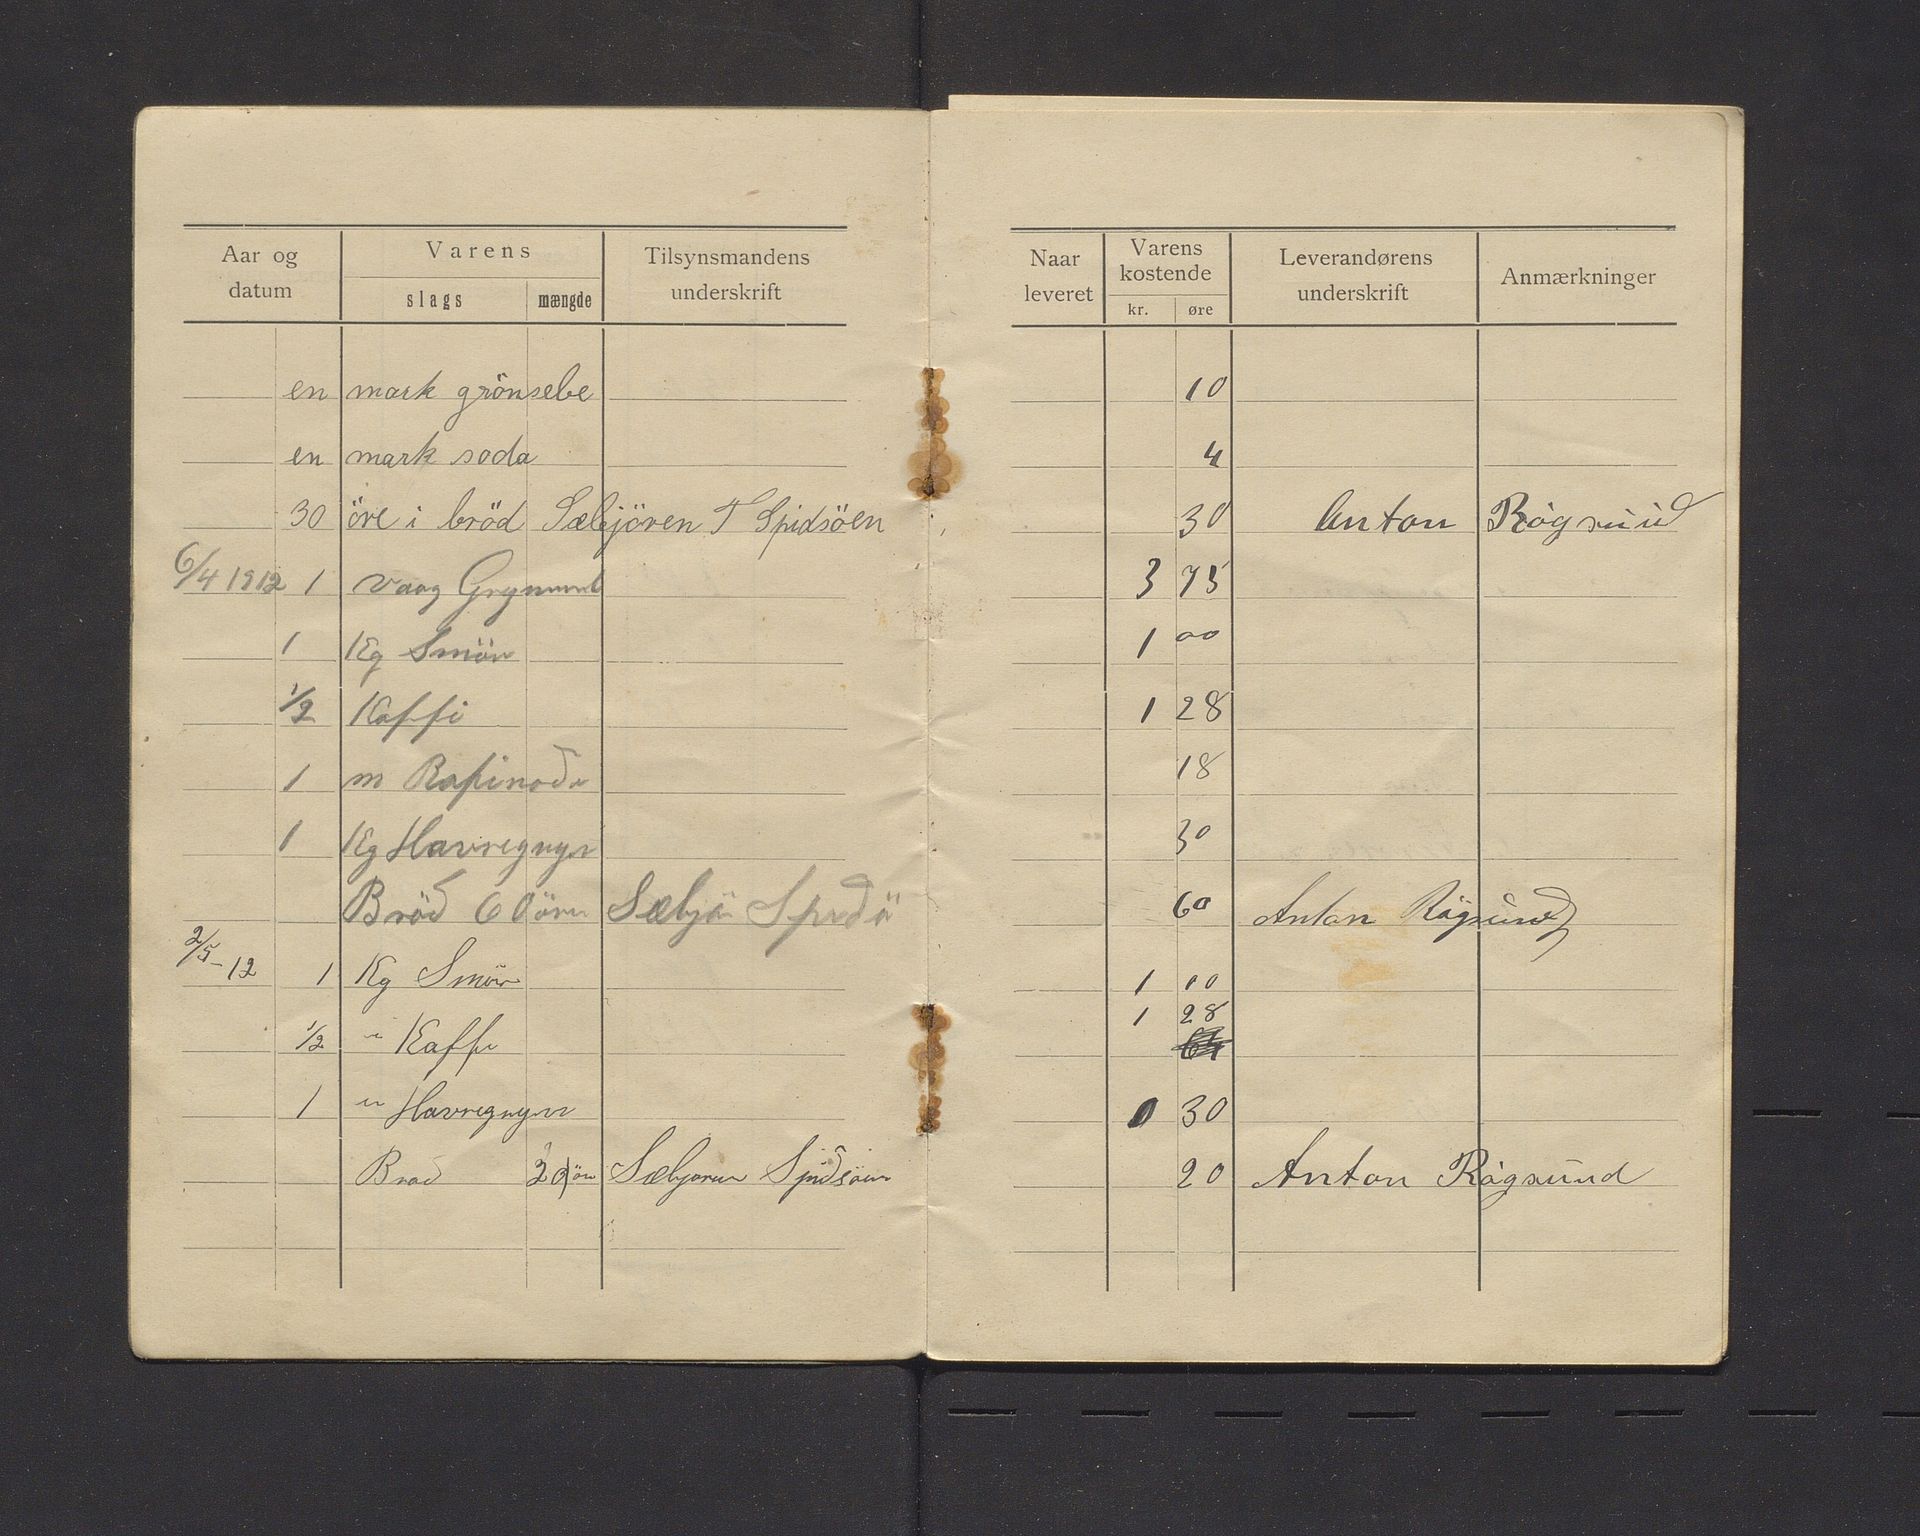 Aar og datum Varens slags mængde Tilsynsmandens underskrift
en mark grönsebe
en mark soda
30 öre i bröd Sæbjören T Spidsöen
6/4 1912 1 vaag Grynmel
1 Kg Smör
1/2 Kaffi
1 m Rafinade
1 Kg Havregryn
Bröd 60 öre Sæbjö Spidsö
2/5-12 1 Kg Smör
1/2 " Kaffe
1 " Havregryn
Bröd 20 öre Sæbjøren Spidsöen
Naar leveret Varens kostende kr. øre Leverandørens underskrift Anmærkninger
10
4
30 Anton Rögsund
3 75
1 00
1 28
18
30
60 Anton Rögsund
1 10
1 28
64
0 30
20 Anton Rögsund